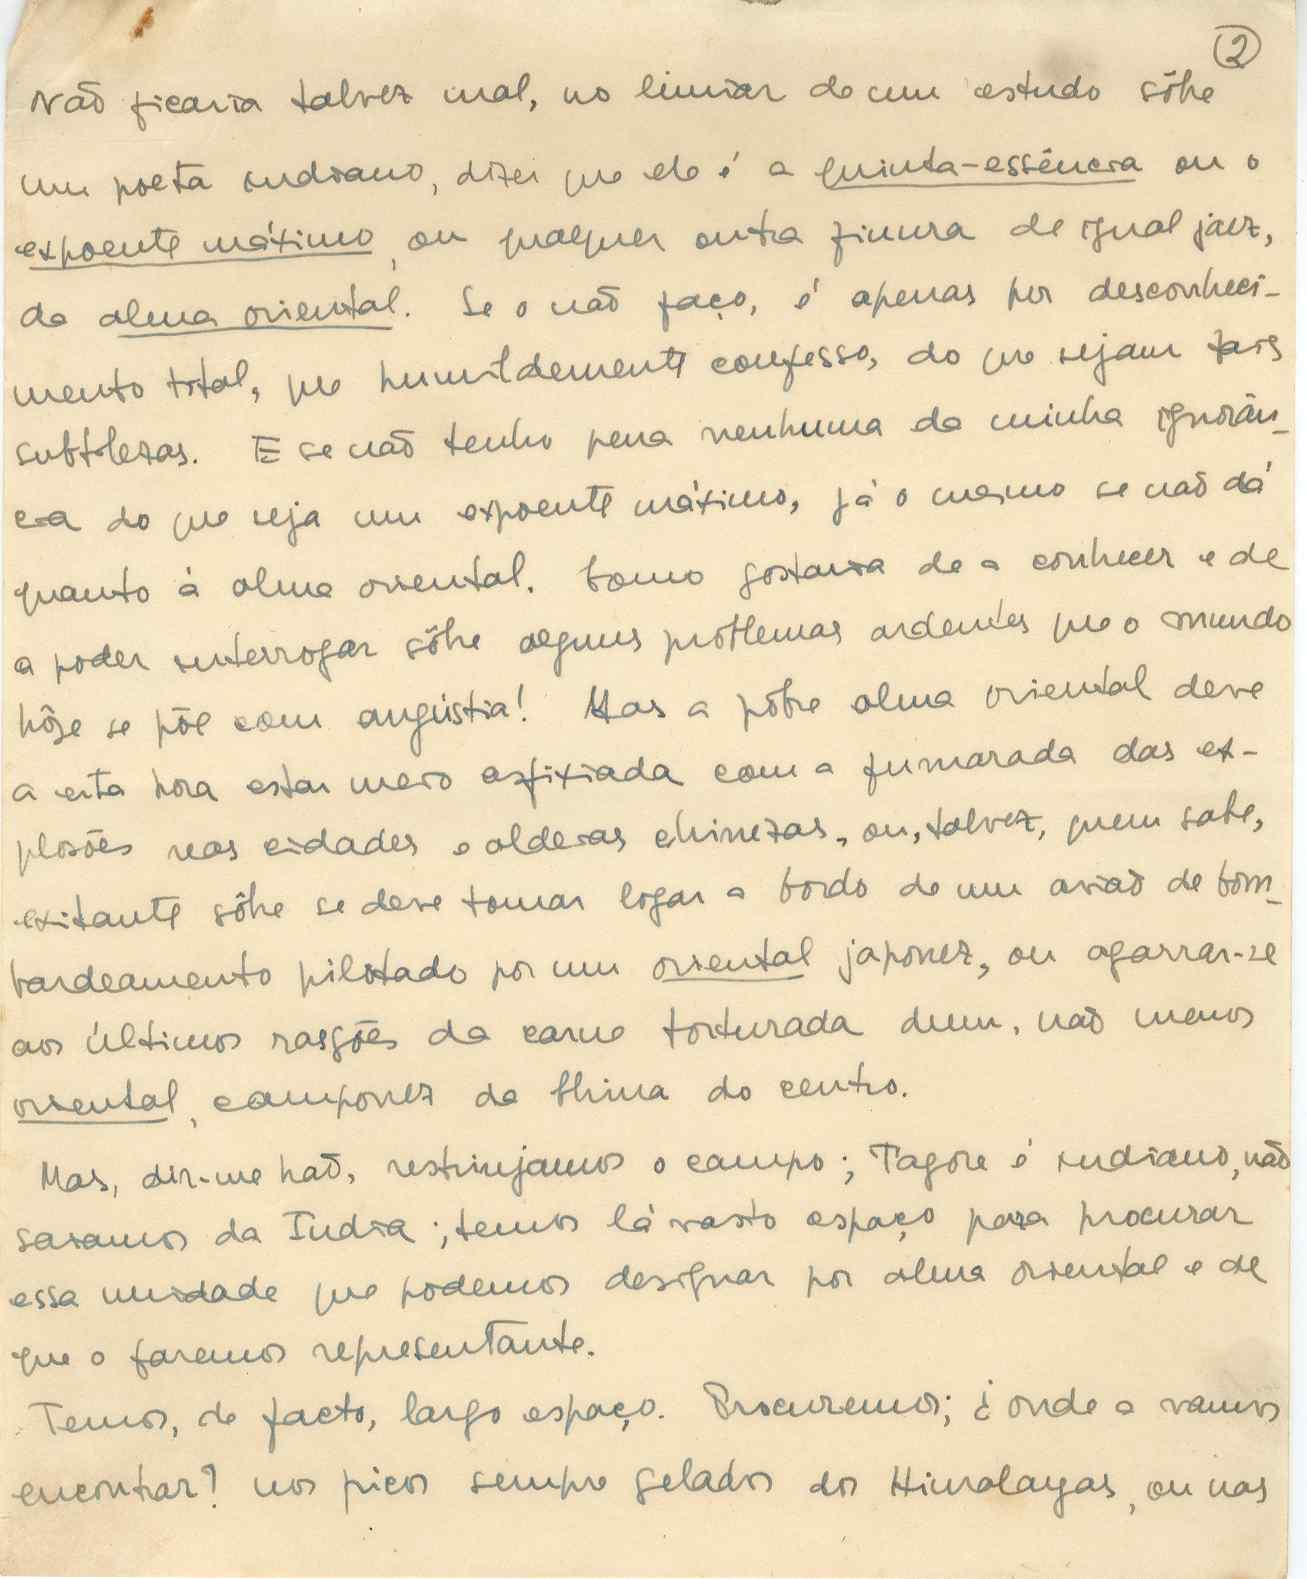 2
Não ficaria talvez mal, no limiar de um estudo sôbre
um poeta indiano, dizer que ele é a quinta-essência ou o
expoente máximo, ou qualquer outra finura de igual jaez,
da alma oriental. Se o não faço, é apenas por desconheci-
mento total, que humildemente confesso, do que sejam tais
subtilezas. E se não tenho pena nenhuma da minha ignorân-
cia do que seja um expoente máximo, já o mesmo se não dá
quanto à alma oriental. Como gostaria de a conhecer e de
a poder interrogar sôbre alguns problemas ardentes que o mundo
hôje se põe com angústia! Mas a pobre alma oriental deve
a esta hora estar meio asfixiada com a fumarada das ex-
plosões nas cidades e aldeias chinezas, ou, talvez, quem sabe,
exitante sôbre se deve tomar logar a bordo de um avião de bom-
bardeamento pilotado por um oriental japonez, ou agarrar-se
aos últimos rasgões da carne torturada dum, não menos
oriental, camponez da China do centro.
Mas, dir-me hão, restrinjamos o campo; Tagore é indiano, não
saiamos da India; temos lá vasto espaço para procurar
essa unidade que podemos designar por alma oriental e de
que o faremos representante.
Temos, de facto, largo espaço. Procuremos; ¿ onde a vamos
encontrar? nos picos sempre gelados dos Himalayas, ou nas